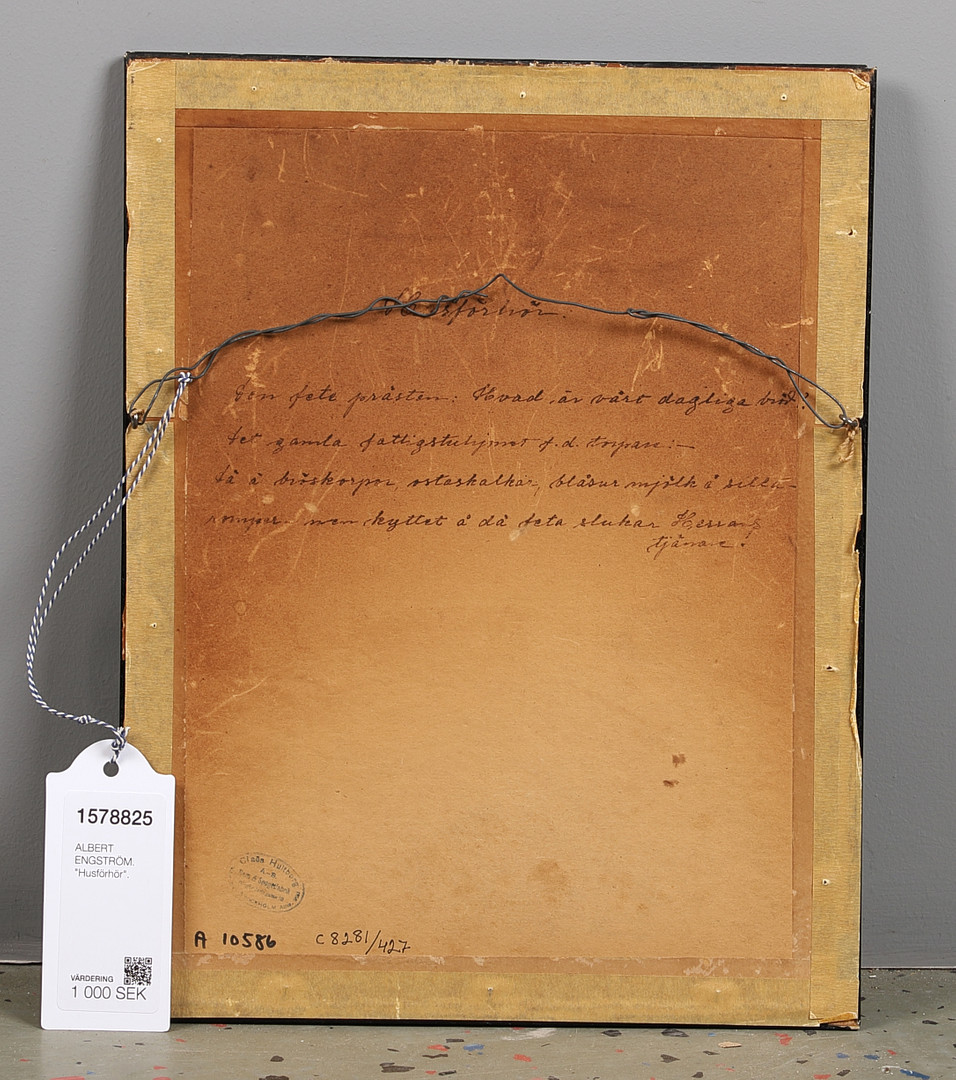 Husförhör.
Den fete prästen: Hvad är vårt dagliga bröd?
Det gamla fattigstuhjonet f.d. torparn:—
Då ä bröskorpor, ostaskalkar, blåsur mjölk å silla-
rompor men kyttet å då feta slukar Herrans
tjänare.
Claës Hultberg
A 10586
C8281/427
1578825
ALBERT
ENGSTRÖM.
"Husförhör".
VÄRDERING
1 000 SEK